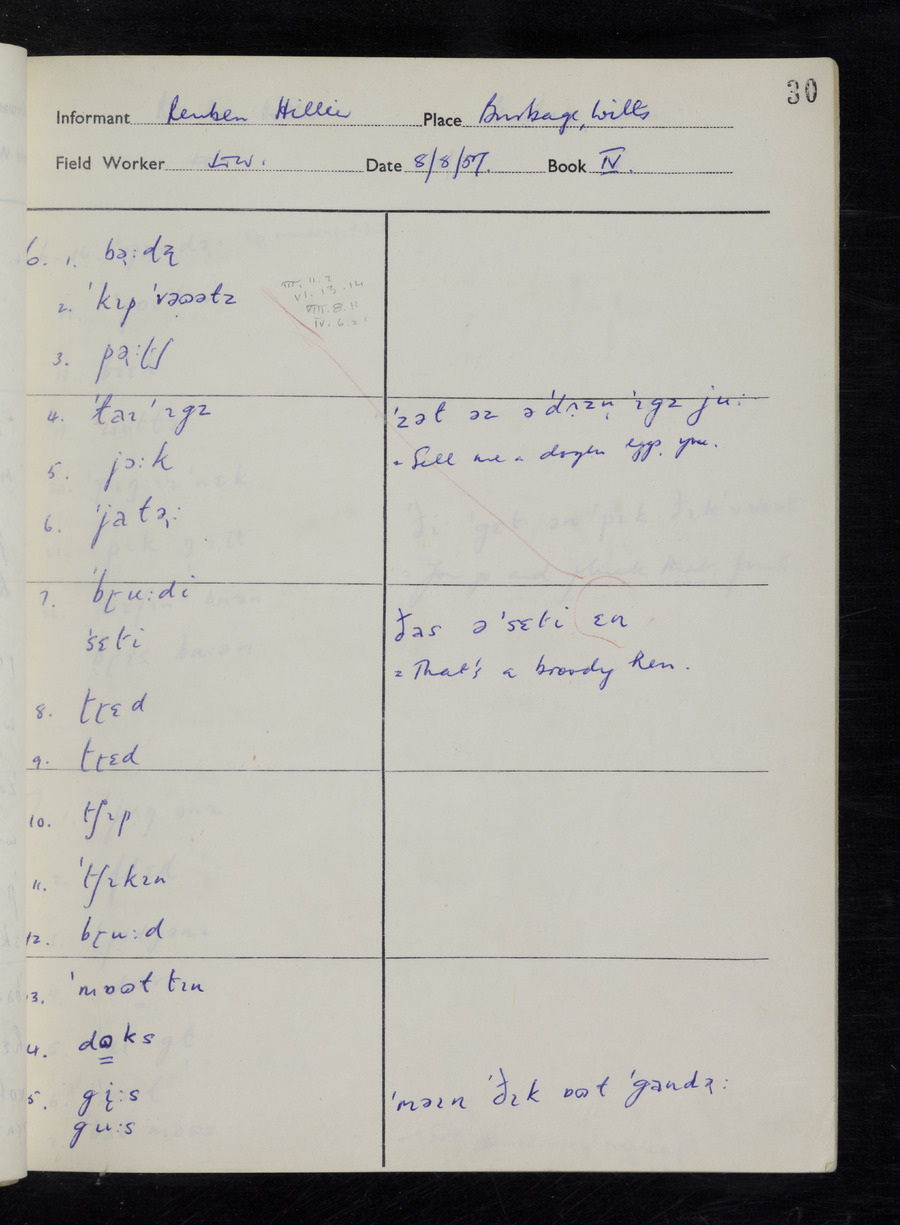 30
Informant Reuben Hillier Place Burbage, Wilts
Field Worker Date 8/8/57. Book IV.
6. 1. bə̢:də̢
2. 'kɪp 'vəʊətɪ
3. pə̢:ʃ
VII. 11. 2
VI. 13. 14
VIII. 8. 11
IV. 6. 2
4. 'taɪ 'ɪgɪ 'zət əɪ ə 'dɽɪzn̩ 'ɪgɪ ju:
= Sell me a dozen eggs, you.
5. jɔ:k
6. 'jatə̢:
7. 'bɽu:di
'sɛti ðəs ə 'sɛti ɛn
= That's a broody hen.
8. tɽɛd
9. tɽɛd
10. tʃɪp
11. 'tʃɪkɪn
12. bɽu:d
13. 'mɒʊt tɪn
4. dʊks
5. gi̢:s 'məɪn 'ðɪk ɒʊt 'gandə̢:
gu:s